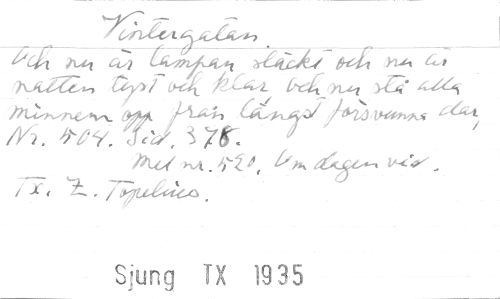 Vintergatan.
Och nu är lampan släckt och nu är
natten tyst och klar och nu stå alla
minnen opp från längst försvunna dar,
Nr. 504. Sid. 378.
Mel nr. 520. Om dagen vid.
Tx. Z. Topelius.
Sjung TX 1935